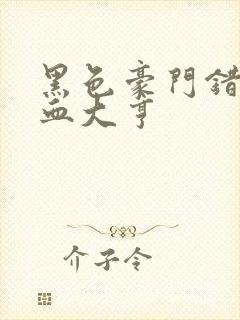 黑色豪門錯
血大亨
介子令